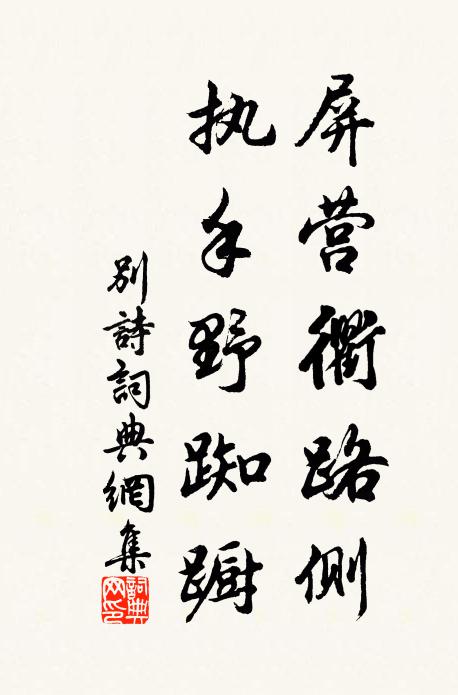 屏营衢路侧
执手野踟蹰
别詩詞典網集
詞典网印